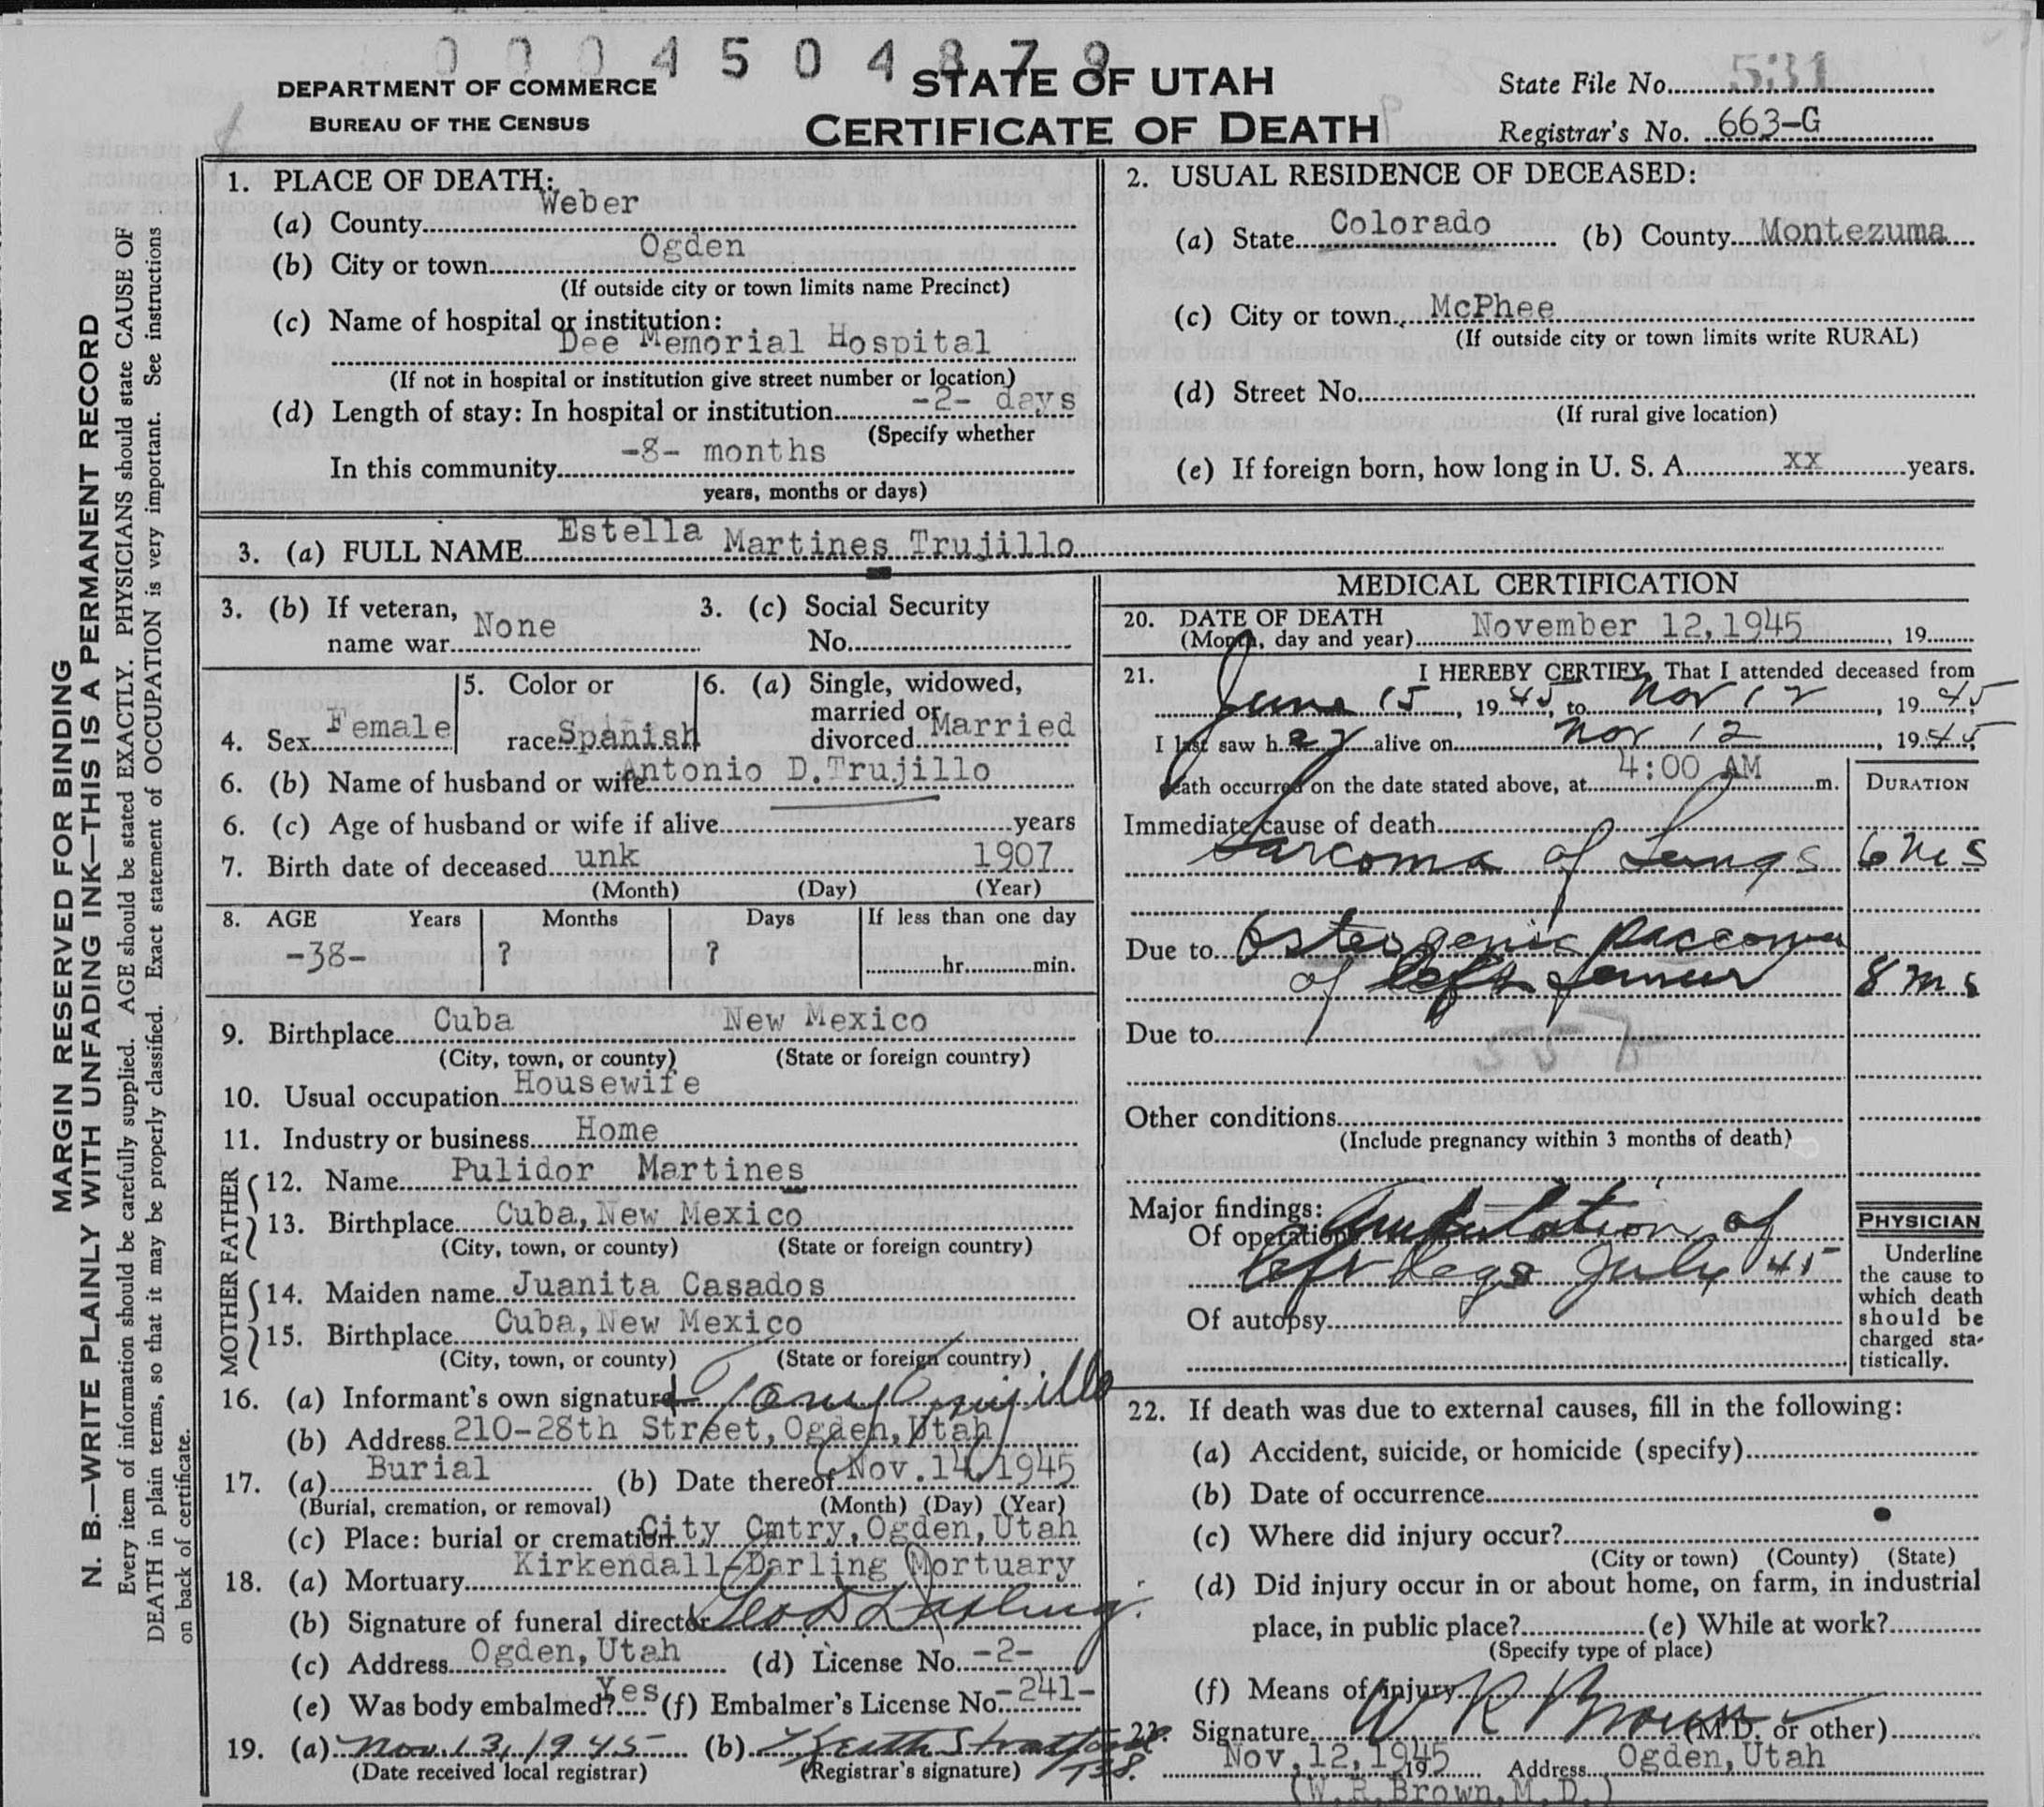 0 0 0 4 5 0 4 8 7 9
DEPARTMENT OF COMMERCE
BUREAU OF THE CENSUS
STATE OF UTAH
CERTIFICATE OF DEATH
State File No. 531
Registrar's No. 663-G
MARGIN RESERVED FOR BINDING
N. B.—WRITE PLAINLY WITH UNFADING INK—THIS IS A PERMANENT RECORD
Every item of information should be carefully supplied. AGE should be stated EXACTLY. PHYSICIANS should state CAUSE OF
DEATH in plain terms, so that it may be properly classified. Exact statement of OCCUPATION is very important. See instructions
on back of certificate.
1. PLACE OF DEATH:
(a) County Weber
(b) City or town Ogden
(If outside city or town limits name Precinct)
(c) Name of hospital or institution:
Dee Memorial Hospital
(If not in hospital or institution give street number or location)
(d) Length of stay: In hospital or institution -2- days
(Specify whether
In this community -8- months
years, months or days)
2. USUAL RESIDENCE OF DECEASED:
(a) State Colorado (b) County Montezuma
(c) City or town McPhee
(If outside city or town limits write RURAL)
(d) Street No.
(If rural give location)
(e) If foreign born, how long in U. S. A. xx years.
3. (a) FULL NAME Estella Martines Trujillo
3. (b) If veteran, name war None
3. (c) Social Security No.
4. Sex Female
5. Color or race Spanish
6. (a) Single, widowed, married or divorced Married
6. (b) Name of husband or wife Antonio D.Trujillo
6. (c) Age of husband or wife if alive years
7. Birth date of deceased unk 1907
(Month) (Day) (Year)
8. AGE Years Months Days If less than one day
-38- ? ? hr. min.
9. Birthplace Cuba New Mexico
(City, town, or county) (State or foreign country)
10. Usual occupation Housewife
11. Industry or business Home
FATHER
12. Name Pulidor Martines
13. Birthplace Cuba, New Mexico
(City, town, or county) (State or foreign country)
MOTHER
14. Maiden name Juanita Casados
15. Birthplace Cuba, New Mexico
(City, town, or county) (State or foreign country)
16. (a) Informant's own signature Tony Trujillo
(b) Address 210-28th Street, Ogden, Utah
17. (a) Burial (b) Date thereof Nov. 14, 1945
(Burial, cremation, or removal) (Month) (Day) (Year)
(c) Place: burial or cremation City Cmtry, Ogden, Utah
18. (a) Mortuary Kirkendall-Darling Mortuary
(b) Signature of funeral director Geo D Darling
(c) Address Ogden, Utah (d) License No. -2-
(e) Was body embalmed? Yes (f) Embalmer's License No. -241-
19. (a) Nov. 13, 1945 (b) Keith Stratford
(Date received local registrar) (Registrar's signature)
MEDICAL CERTIFICATION
20. DATE OF DEATH
(Month, day and year) November 12, 1945, 19
21. I HEREBY CERTIFY, That I attended deceased from
June 15, 1945, to Nov 12, 1945;
I last saw her alive on Nov 12, 1945;
death occurred on the date stated above, at 4:00 AM m.
DURATION
Immediate cause of death
Sarcoma of Lungs
Due to Osteogenic sarcoma
of left femur 8 ms
Due to
557
Other conditions
(Include pregnancy within 3 months of death)
Major findings:
Of operations Amputation of
left leg July 45
Of autopsy
PHYSICIAN
Underline
the cause to
which death
should be
charged sta-
tistically.
22. If death was due to external causes, fill in the following:
(a) Accident, suicide, or homicide (specify)
(b) Date of occurrence
(c) Where did injury occur?
(City or town) (County) (State)
(d) Did injury occur in or about home, on farm, in industrial
place, in public place? (e) While at work?
(Specify type of place)
(f) Means of injury
23. Signature W R Brown (M.D. or other)
Nov. 12, 1945 19 Address Ogden, Utah
(W.R.Brown, M.D.)